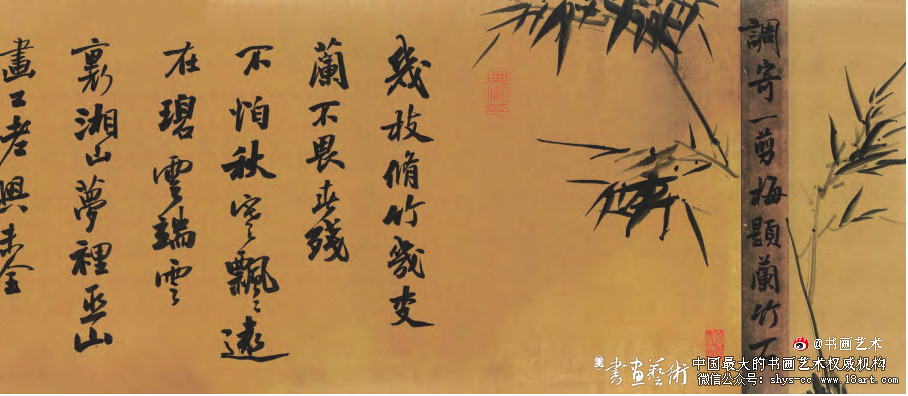 調寄一剪梅題蘭竹
幾枝脩竹幾支
蘭不畏春殘
不怕秋寒飄〻遠
在碧雲端雲
裏湘山夢裡巫山
畫工老興未全
書畫藝術
@书画艺术
中国最大的书画艺术权威机构
微信公众号: shys-cc www.18art.com